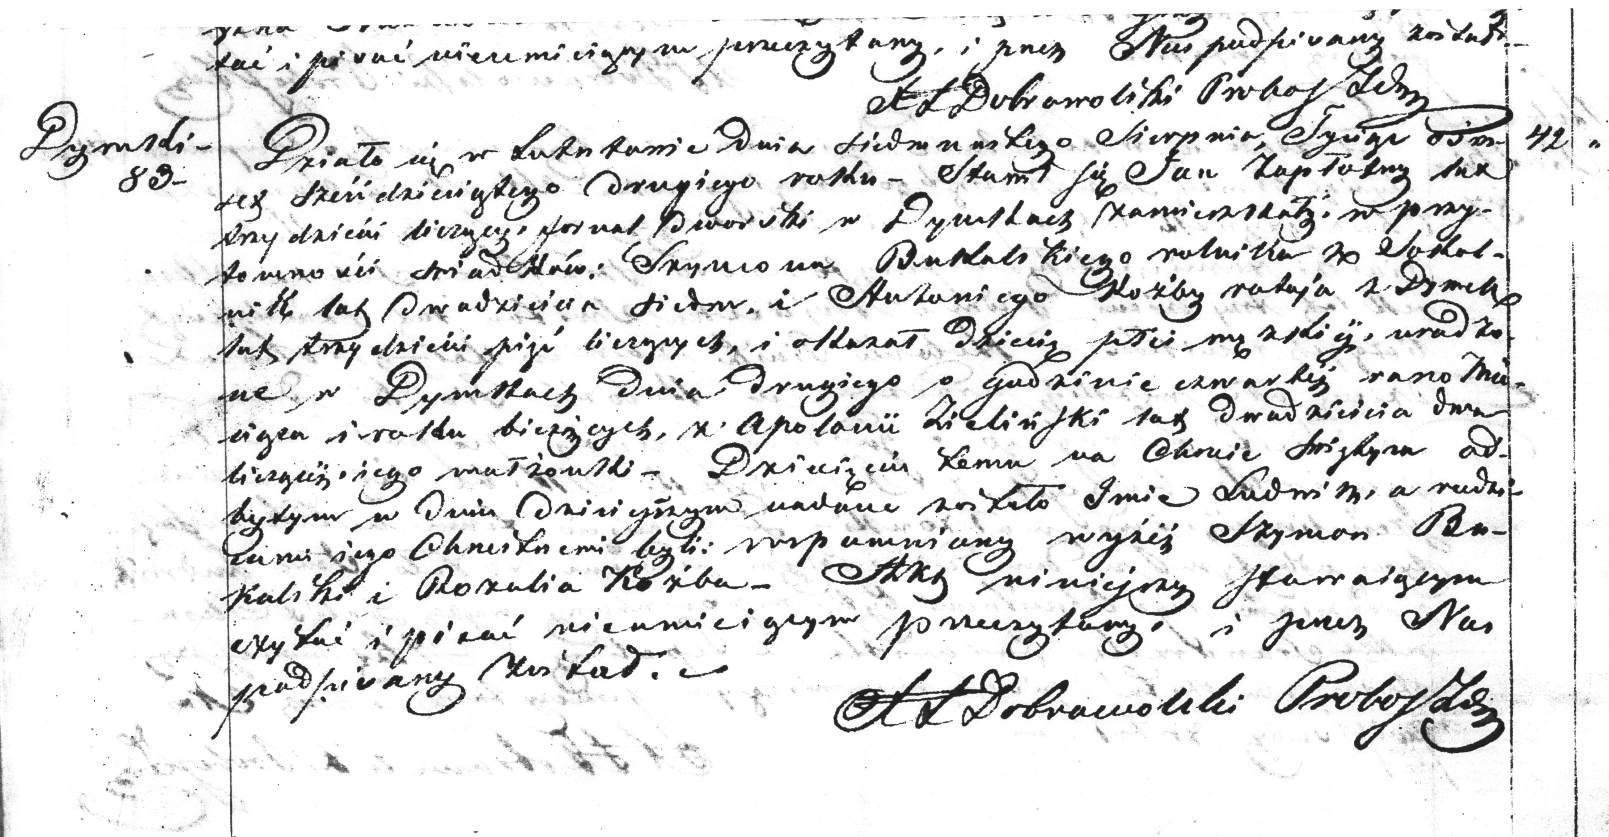 tać i pisać nieumiejącym przeczytany, i przez Nas podpisany został.
X L Dobrowolski Proboszcz
Dymki
83
Działo się w Lututowie Dnia siedmnastego Sierpnia, Tysiąc ośm- 42
set sześćdziesiątego drugiego roku – Stawił się Jan Zapłatny lat
trzydzieści liczący, fornal Dworski w Dymkach zamieszkały, w przy-
tomności świadków: Szymona Bukalskiego rolnika z Sokol-
nik lat dwadzieścia siedm, i Antoniego Koźby rataja z Dymek
lat trzydzieści pięć liczących, i okazał Dziecię płci męzkiéj, urodzo-
ne w Dymkach Dnia drugiego o godzinie czwartéj rano Mie-
siąca i roku bieżących, z Apolonii Zieliński lat dwadzieścia dwa
liczącéj, iego małżonki – Dziecięciu temu na Chrzcie Świętym od-
bytym w dniu dzisiejszym nadane zostało Imie Ludwik, a rodzi-
cami iego Chrzestnemi byli: wspomniany wyżéj Szymon Bu-
kalski i Rozalia Koźba – Akt niniejszy stawaiącym
czytać i pisać nieumieiącym przeczytany, i przez Nas
podpisany został.
X L Dobrowolski Proboszcz